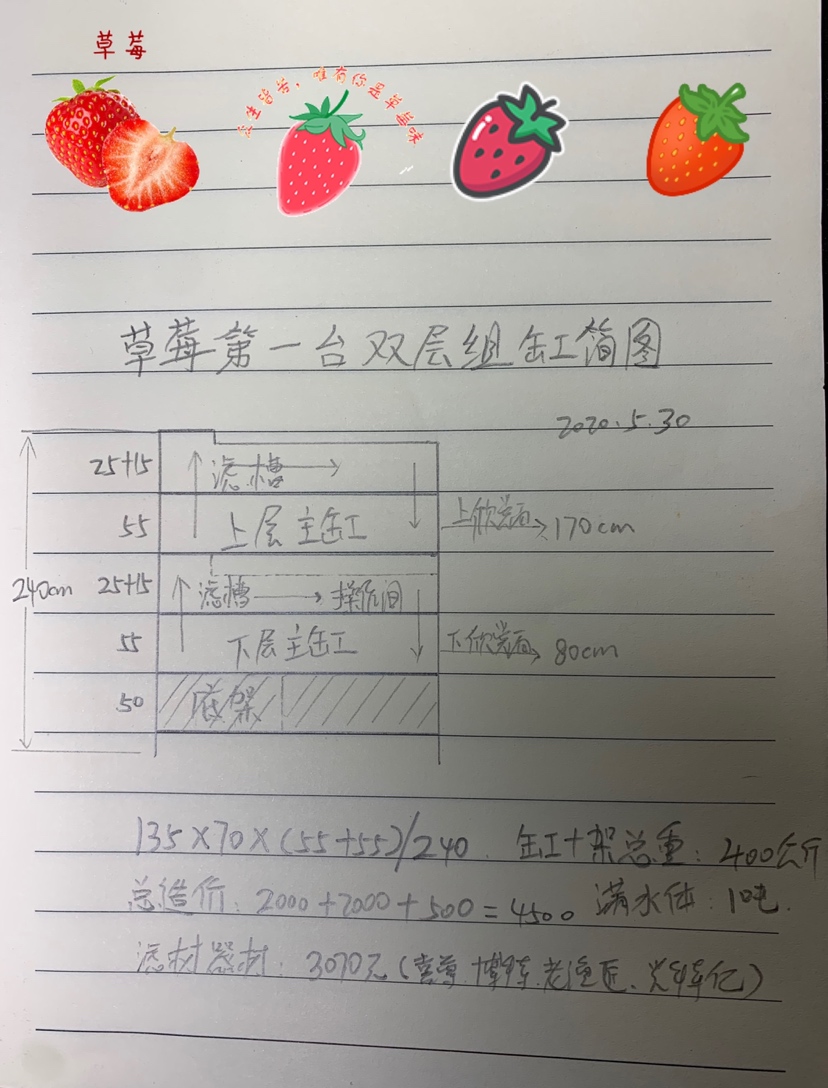 草莓
众生皆苦，唯有你是草莓味
草莓第一台双层组缸简图
2020.5.30
25+15 滤槽
55 上层主缸 上欣赏面 170cm
240cm 25+15 滤槽 操作间
55 下层主缸 下欣赏面 80cm
50 底架
135×70×(55+55)/240 缸+架总重：400公斤
总造价：2000+2000+500=4500 满水体：1吨.
滤材器材：3070元(